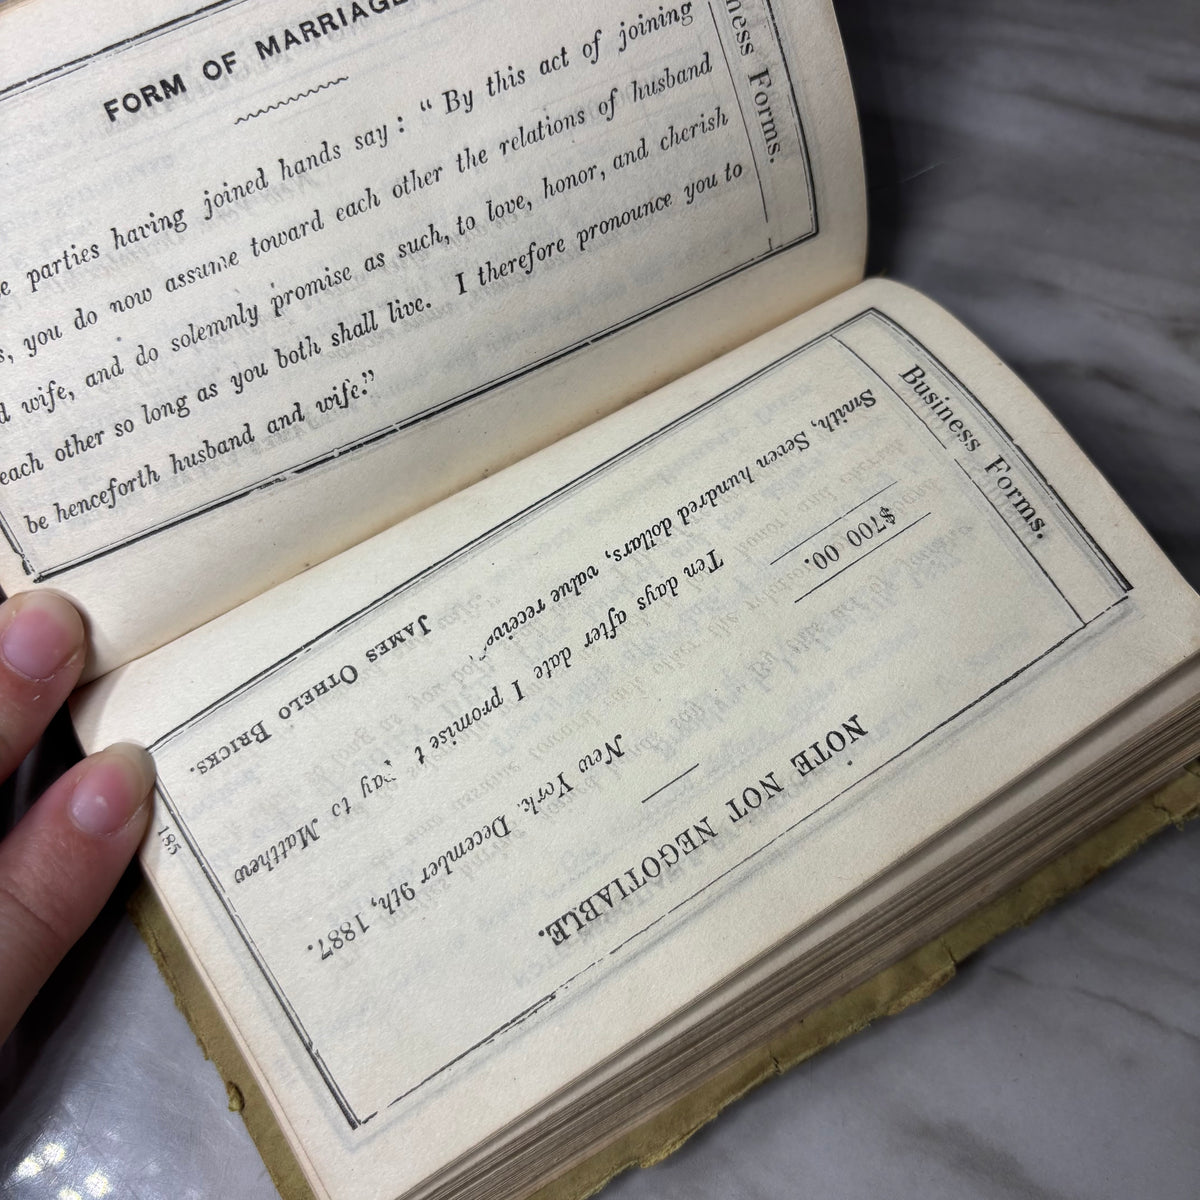 FORM OF MARRIAGE
parties having joined hands say: “ By this act of joining
you do now assume toward each other the relations of husband
wife, and do solemnly promise as such, to love, honor, and cherish
each other so long as you both shall live. I therefore pronounce you to
be henceforth husband and wife.”
Forms.
Business Forms.
NOTE NOT NEGOTIABLE.
$700 00.
New York, December 9th, 1887.
Ten days after date I promise t pay to Matthew
Smith, Seven hundred dollars, value receive
JAMES OTHELO BRICKS.
185